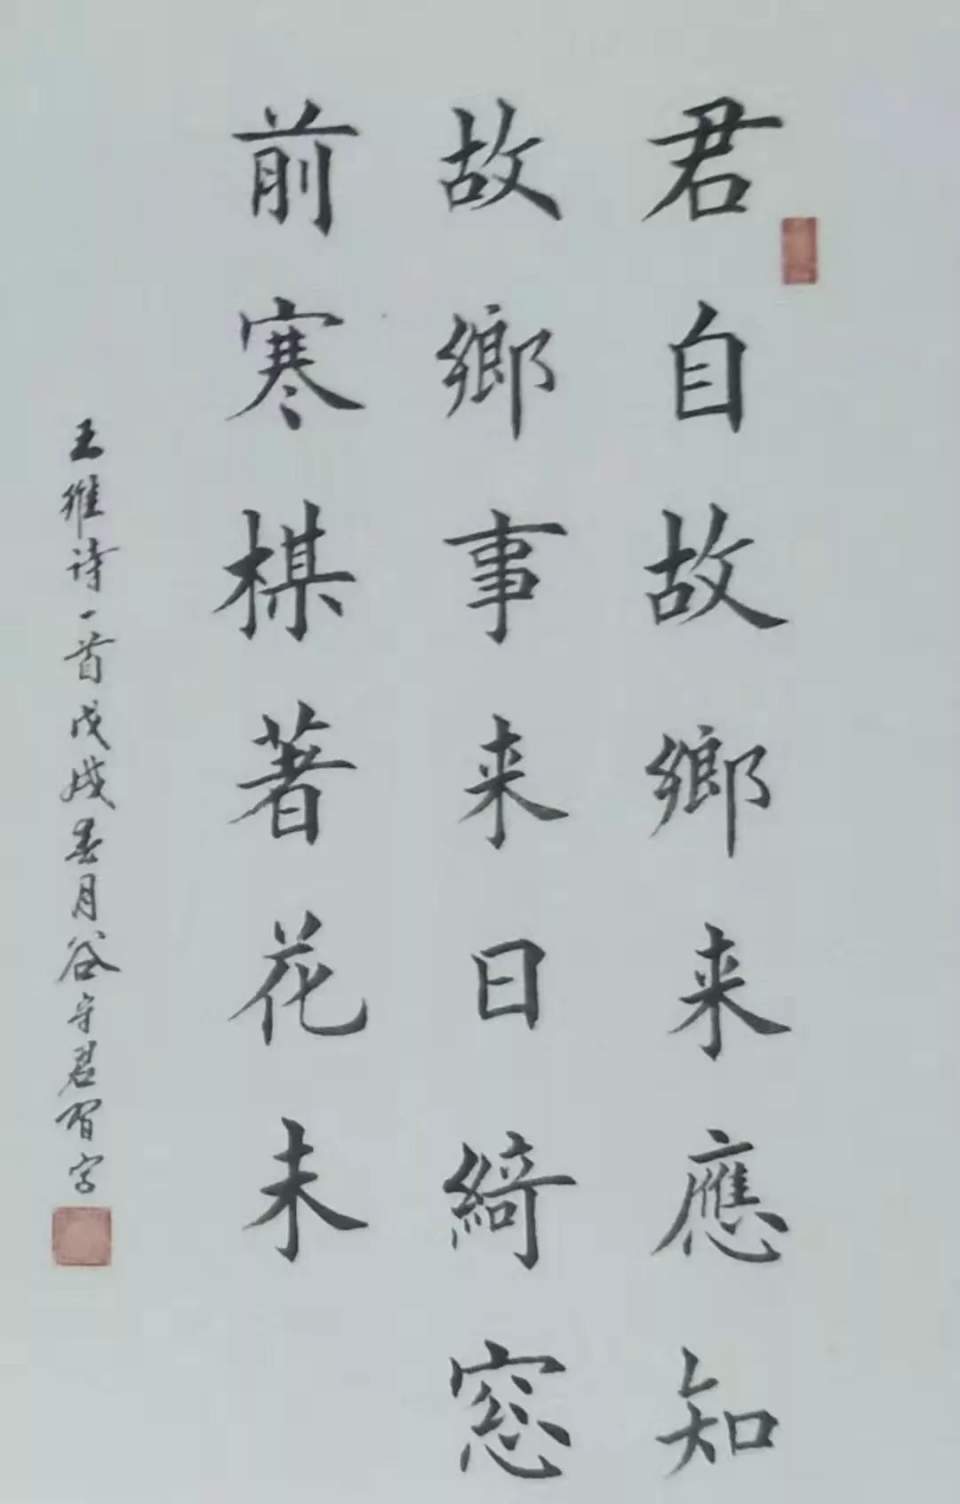 君自故鄉来應知
故鄉事来日綺窓
前寒楳著花未
王維诗一首戊戌春月谷守君習字